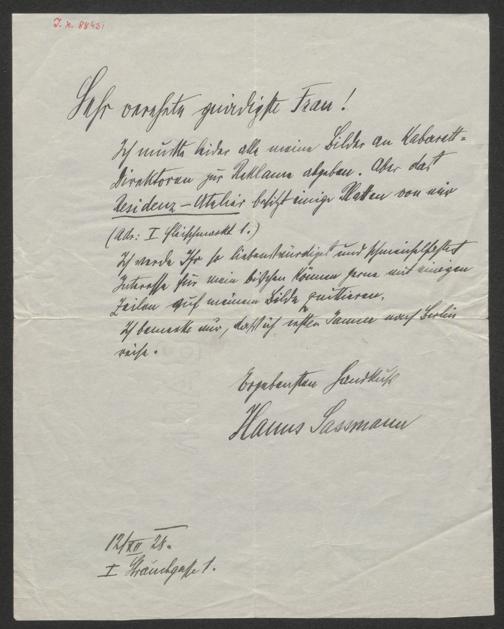 I. N. 88431
Sehr verehrte gnädigste Frau!
Ich mußte leider alle meine Bilder an Kabarett-
Direktoren zur Reklame abgeben. Aber das
Residenz-Atelier besitzt einige Platten von mir
(Adr: I Fleischmarkt 1.)
Ich werde Ihr so liebenswürdiges und schmeichelhaftes
Interesse für mein bißchen Können gerne mit einigen
Zeilen auf meinem Bilde quittieren.
Ich bemerke nur, daß ich ersten Jänner nach Berlin
reise.
Ergebensten Handkuß
Hanns Sassmann
12/XII 28.
I Strauchgasse 1.